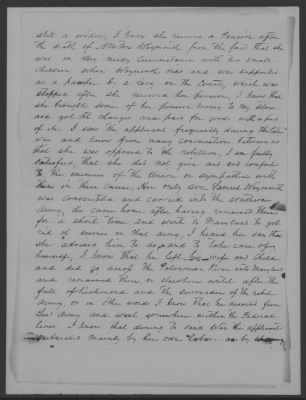 still a widow, I know she received a Pension after
the death of Weymouth from the fact that she
was in very needy circumstances with her small
children when Weymouth died and was supported
as a pauper by a levy on the County, which was
stopped after she received her pension, I know that
she brought some of her pension money to my store
and got it changed and paid for goods with a part
of it. I saw the applicant frequently during the late
war and know from many conversations between us
that she was opposed to the rebellion, I am fully
satisfied, that she did not give aid and comfort
to the enemies of the Union or sympathize with
them in their cause, Her only son Weymouth
was conscripted and carried into the southern
army, he came home after having remained there
for a short time and went to Maryland to get
rid of service in that army, I heard her say that
she advised him to do so and to take care of
himself, I know that he left his wife and child
and did go across the Potowmac River into Maryland
and remained there or elsewhere until after the
fall of Richmond and the surrender of the rebel
Army, or in other words I know that he deserted from
Lee's Army and went somewhere within the Federal
lines I know that during the said War the applicant
mainly by her own labor as by